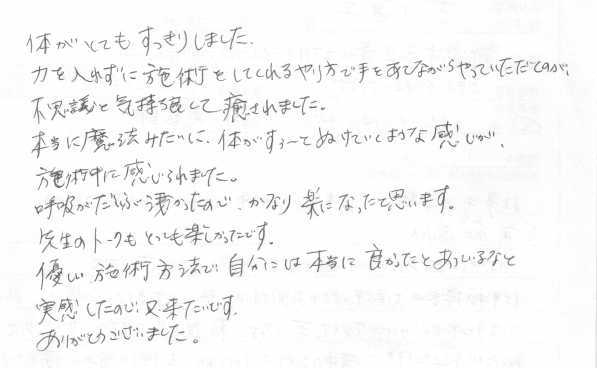 体がとてもすっきりしました。
力を入れずに施術をしてくれるやり方で手をあてながらやっていただたのが、
不思議と気持良くて癒されました。
本当に魔法みたいに、体がすぅーとぬけていくような感じが、
施術中に感じられました。
呼吸がだいぶ浅かったので、かなり楽になったと思います。
先生のトークもとっても楽しかったです。
優しい施術方法で自分には本当に良かったとあっているなと
実感したので又来たいです。
ありがとうございました。